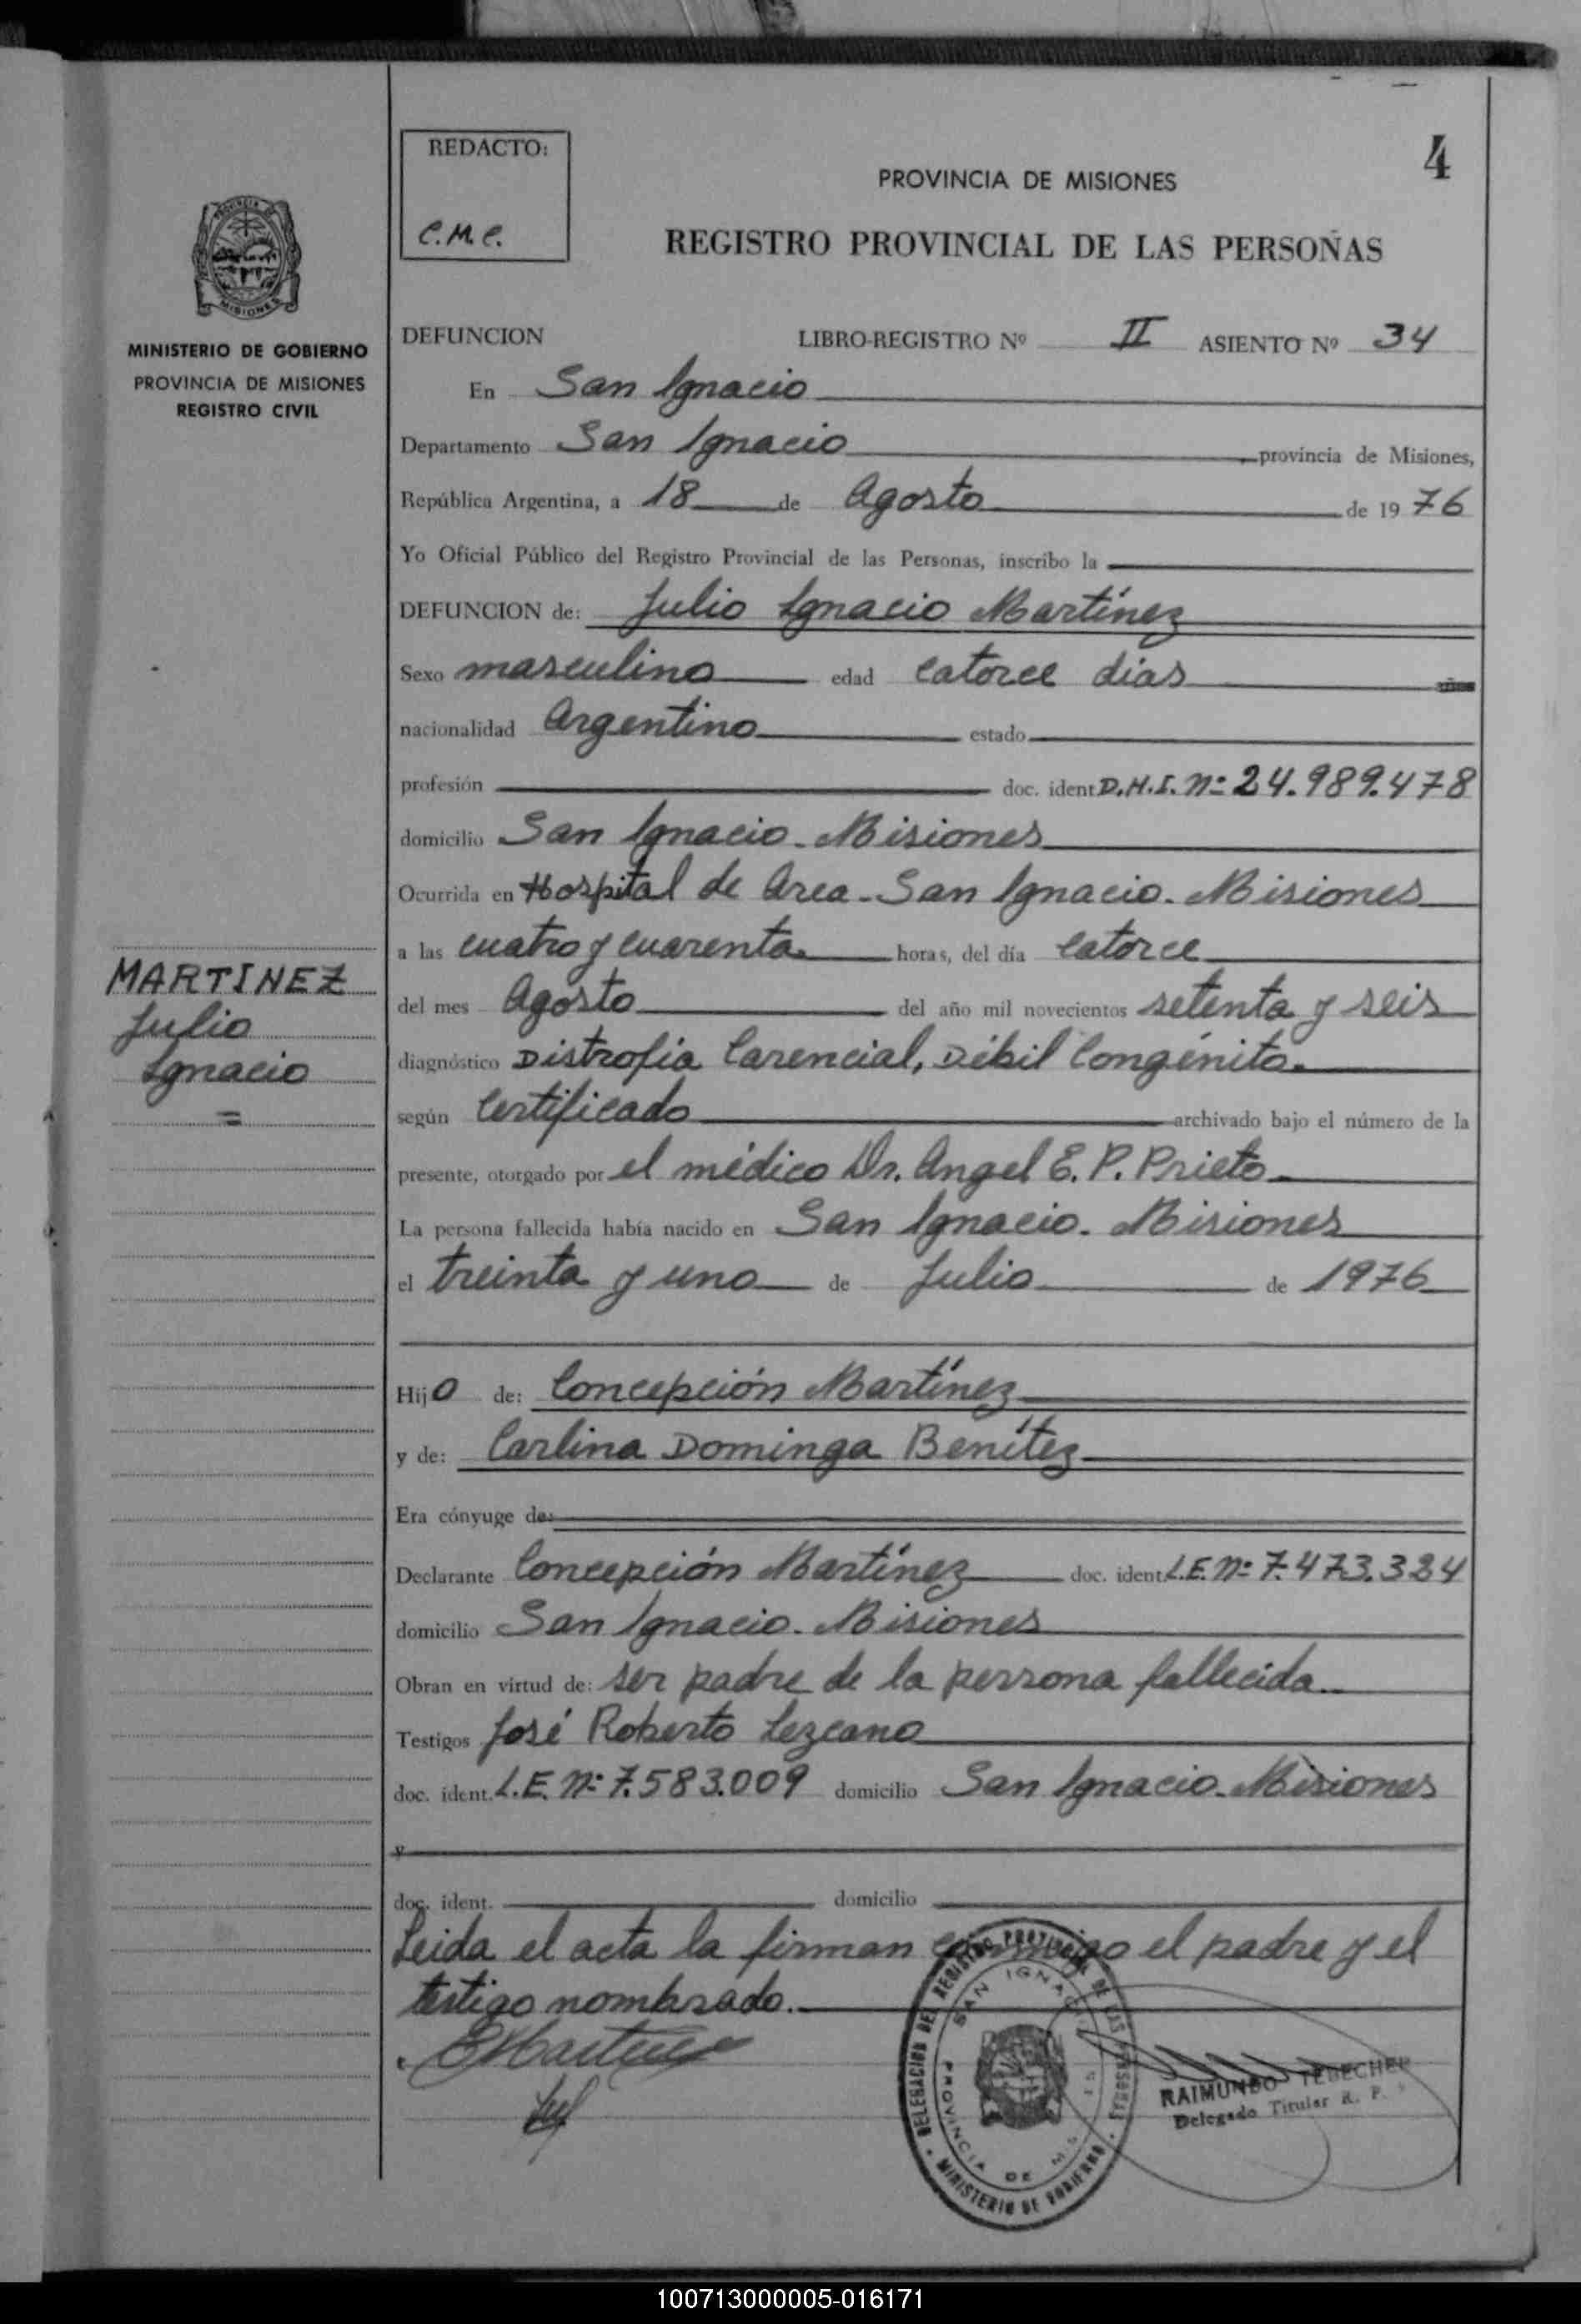 REDACTO:
C.M.C.
4
PROVINCIA DE MISIONES
REGISTRO PROVINCIAL DE LAS PERSONAS
PROVINCIA DE
MISIONES
MINISTERIO DE GOBIERNO
PROVINCIA DE MISIONES
REGISTRO CIVIL
DEFUNCION LIBRO-REGISTRO Nº II ASIENTO Nº 34
En San Ignacio
Departamento San Ignacio provincia de Misiones,
República Argentina, a 18 de Agosto de 1976
Yo Oficial Público del Registro Provincial de las Personas, inscribo la
DEFUNCION de: Julio Ignacio Martínez
Sexo masculino edad catorce dias
nacionalidad Argentino estado
profesión doc. ident D.N.I. Nº 24.989.478
domicilio San Ignacio - Misiones
Ocurrida en Hospital de Area - San Ignacio - Misiones
a las cuatro y cuarenta horas, del día catorce
del mes Agosto del año mil novecientos setenta y seis
diagnóstico Distrofia Carencial, Débil Congénito.
según Certificado archivado bajo el número de la
presente, otorgado por el médico Dr. Angel E. P. Prieto
La persona fallecida había nacido en San Ignacio - Misiones
el treinta y uno de Julio de 1976
MARTINEZ
Julio
Ignacio
=
Hijo de: Concepción Martínez
y de: Carlina Dominga Benítez
Era cónyuge de:
Declarante Concepción Martínez doc. ident. L.E. Nº 7.473.324
domicilio San Ignacio - Misiones
Obran en virtud de: ser padre de la persona fallecida.
Testigos José Roberto Lezcano
doc. ident. L.E. Nº 7.583.009 domicilio San Ignacio - Misiones
y
doc. ident. domicilio
Leida el acta la firman conmigo el padre y el
testigo nombrado.
CMartinez
DELEGACION DEL REGISTRO PROVINCIAL DE LAS PERSONAS
SAN IGNACIO
PROVINCIA DE MISIONES
MINISTERIO DE GOBIERNO
RAIMUNDO TEBECHER
Delegado Titular R. P.
100713000005-016171